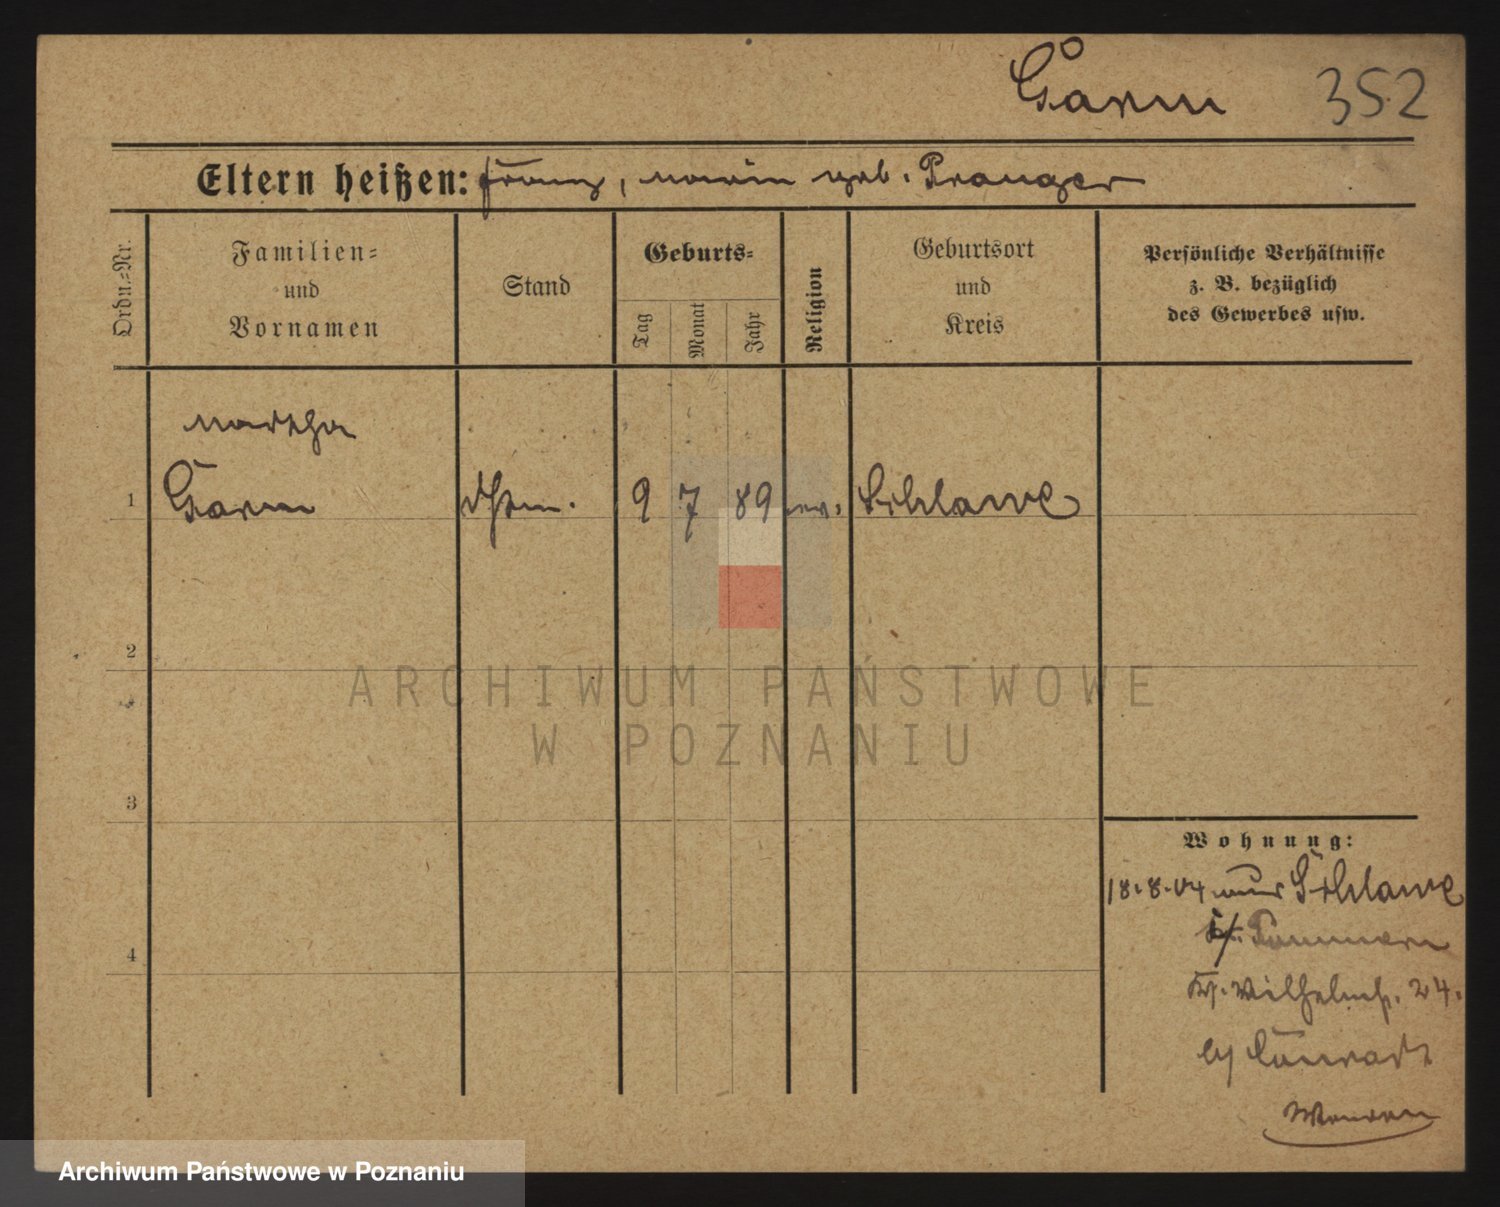 Garm 352
Eltern heißen: Franz, Marie geb. Pranger
Ordn.=Nr.
Familien=
und
Vornamen
Stand
Geburts=
Tag
Monat
Jahr
Religion
Geburtsort
und
Kreis
Persönliche Verhältnisse
z. B. bezüglich
des Gewerbes usw.
Martha
1 Garm 9 7 89 ev. Schlawe
2
ARCHIWUM PAŃSTWOWE
W POZNANIU
3
Wohnung:
18.8.04 aus Schlawe
i/ Pommern
4
Wilhelmstr. 24.
by Conradt
Archiwum Państwowe w Poznaniu